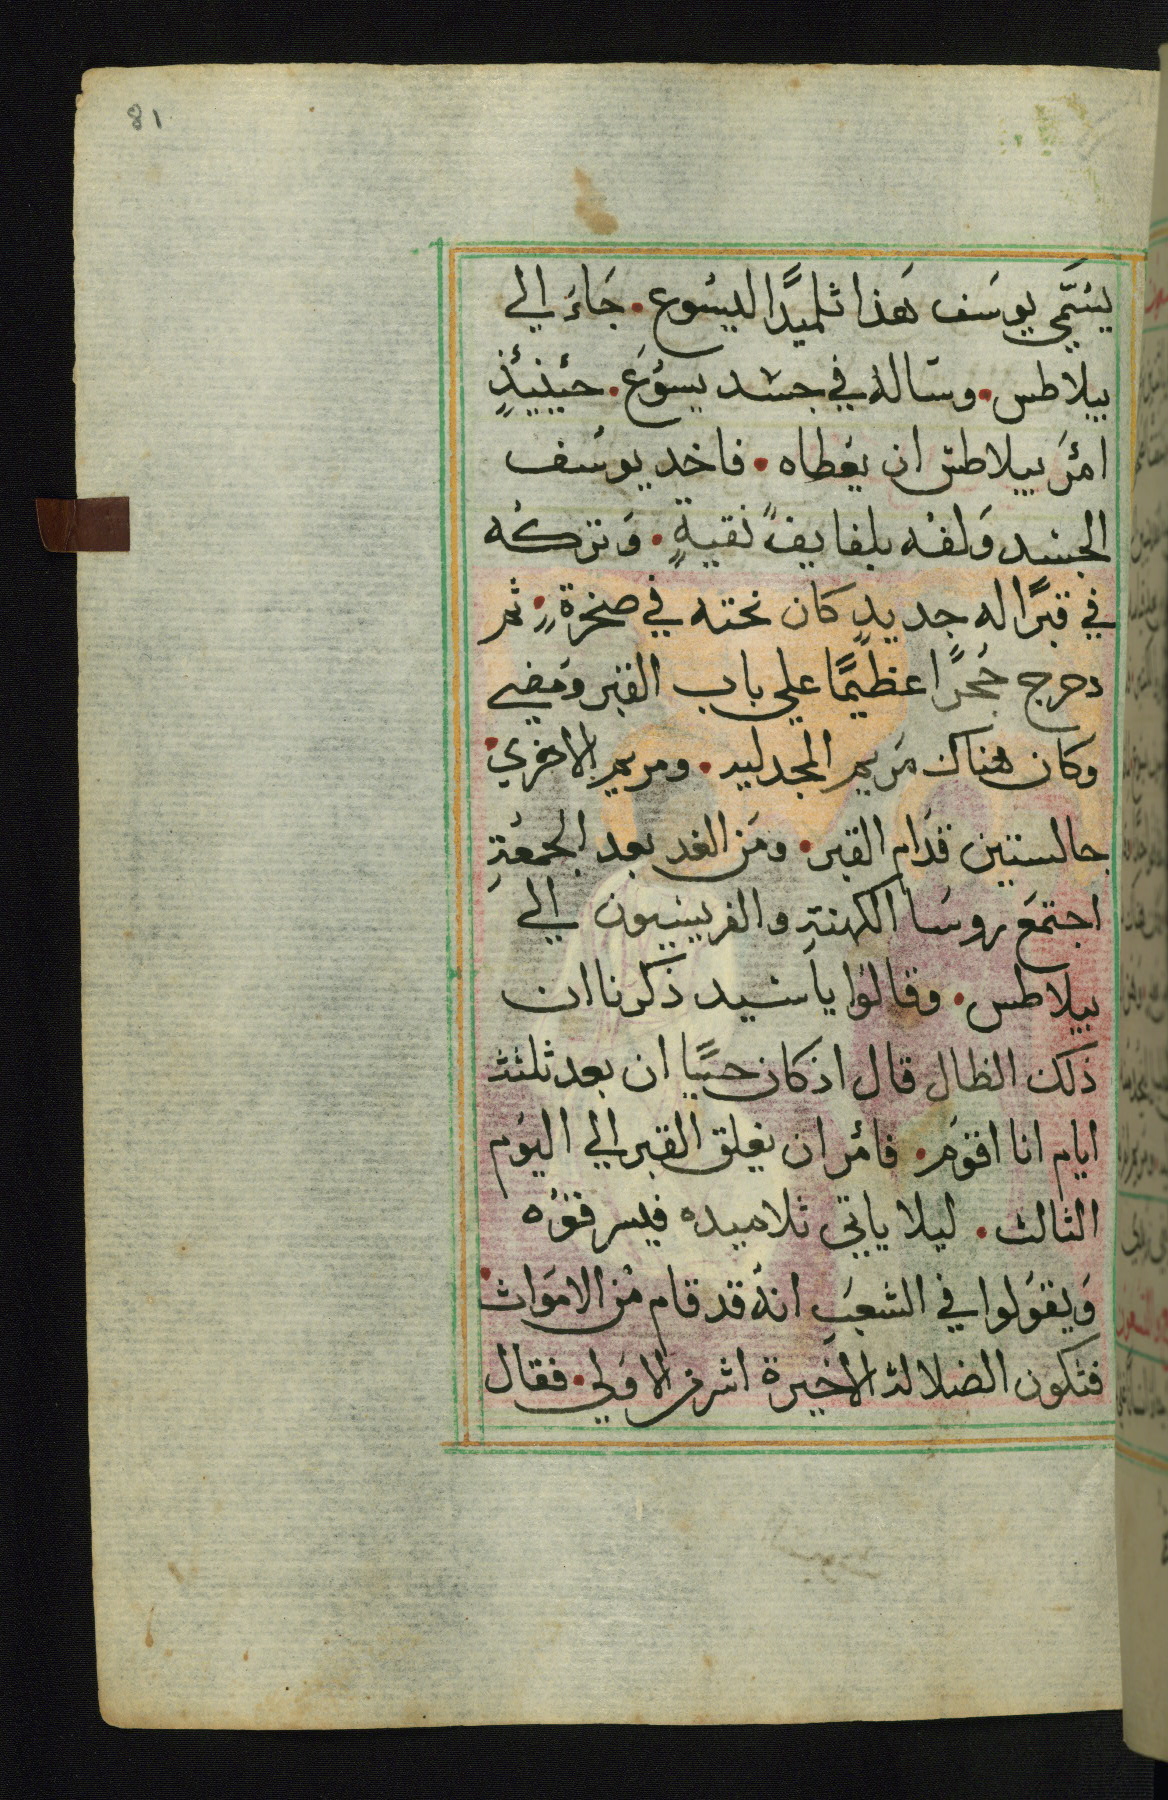 81
يسَمّي يوسَف هَذا تلميدًا ليسُوع. جَاءَ الي
بيلاطس. وسَاله في جسَد يسوُعَ. حينيئذٍ
امرَ بيلاطس ان يعُطاه. فاخد يوسُف
الجسَد وَلفه بلفايفً نقيةٍ. وَتركه
في قبرًا له جديدٍ كان نحته في صخرةٍ. ثم
دحرج حَجرًا عظيمًا علي باب القبر ومَضي
وكان هناك مَريم المجدليه. ومريم الاخري.
جالستين قدَام القبر. ومَن الغد بعد الجمعُةِ
اجتمَع روسَا الكهنةِ والفريسيون الي
بيلاطس. وقالوُا ياسَيد ذكرنا ان
ذلك الظال قال اذ كان حيًا ان بعد ثلثت
ايام انا اقوَم. فامُر ان يغلق القبر الي اليوُم
الثالث. ليلا ياتي تلاميده فيسرقوُه
وَيقوَلوا في الشعَبِ انهُ قد قام مُن الامَوات.
فتكون الضلالة الاخيرة اشر من الاوَلي. فقال